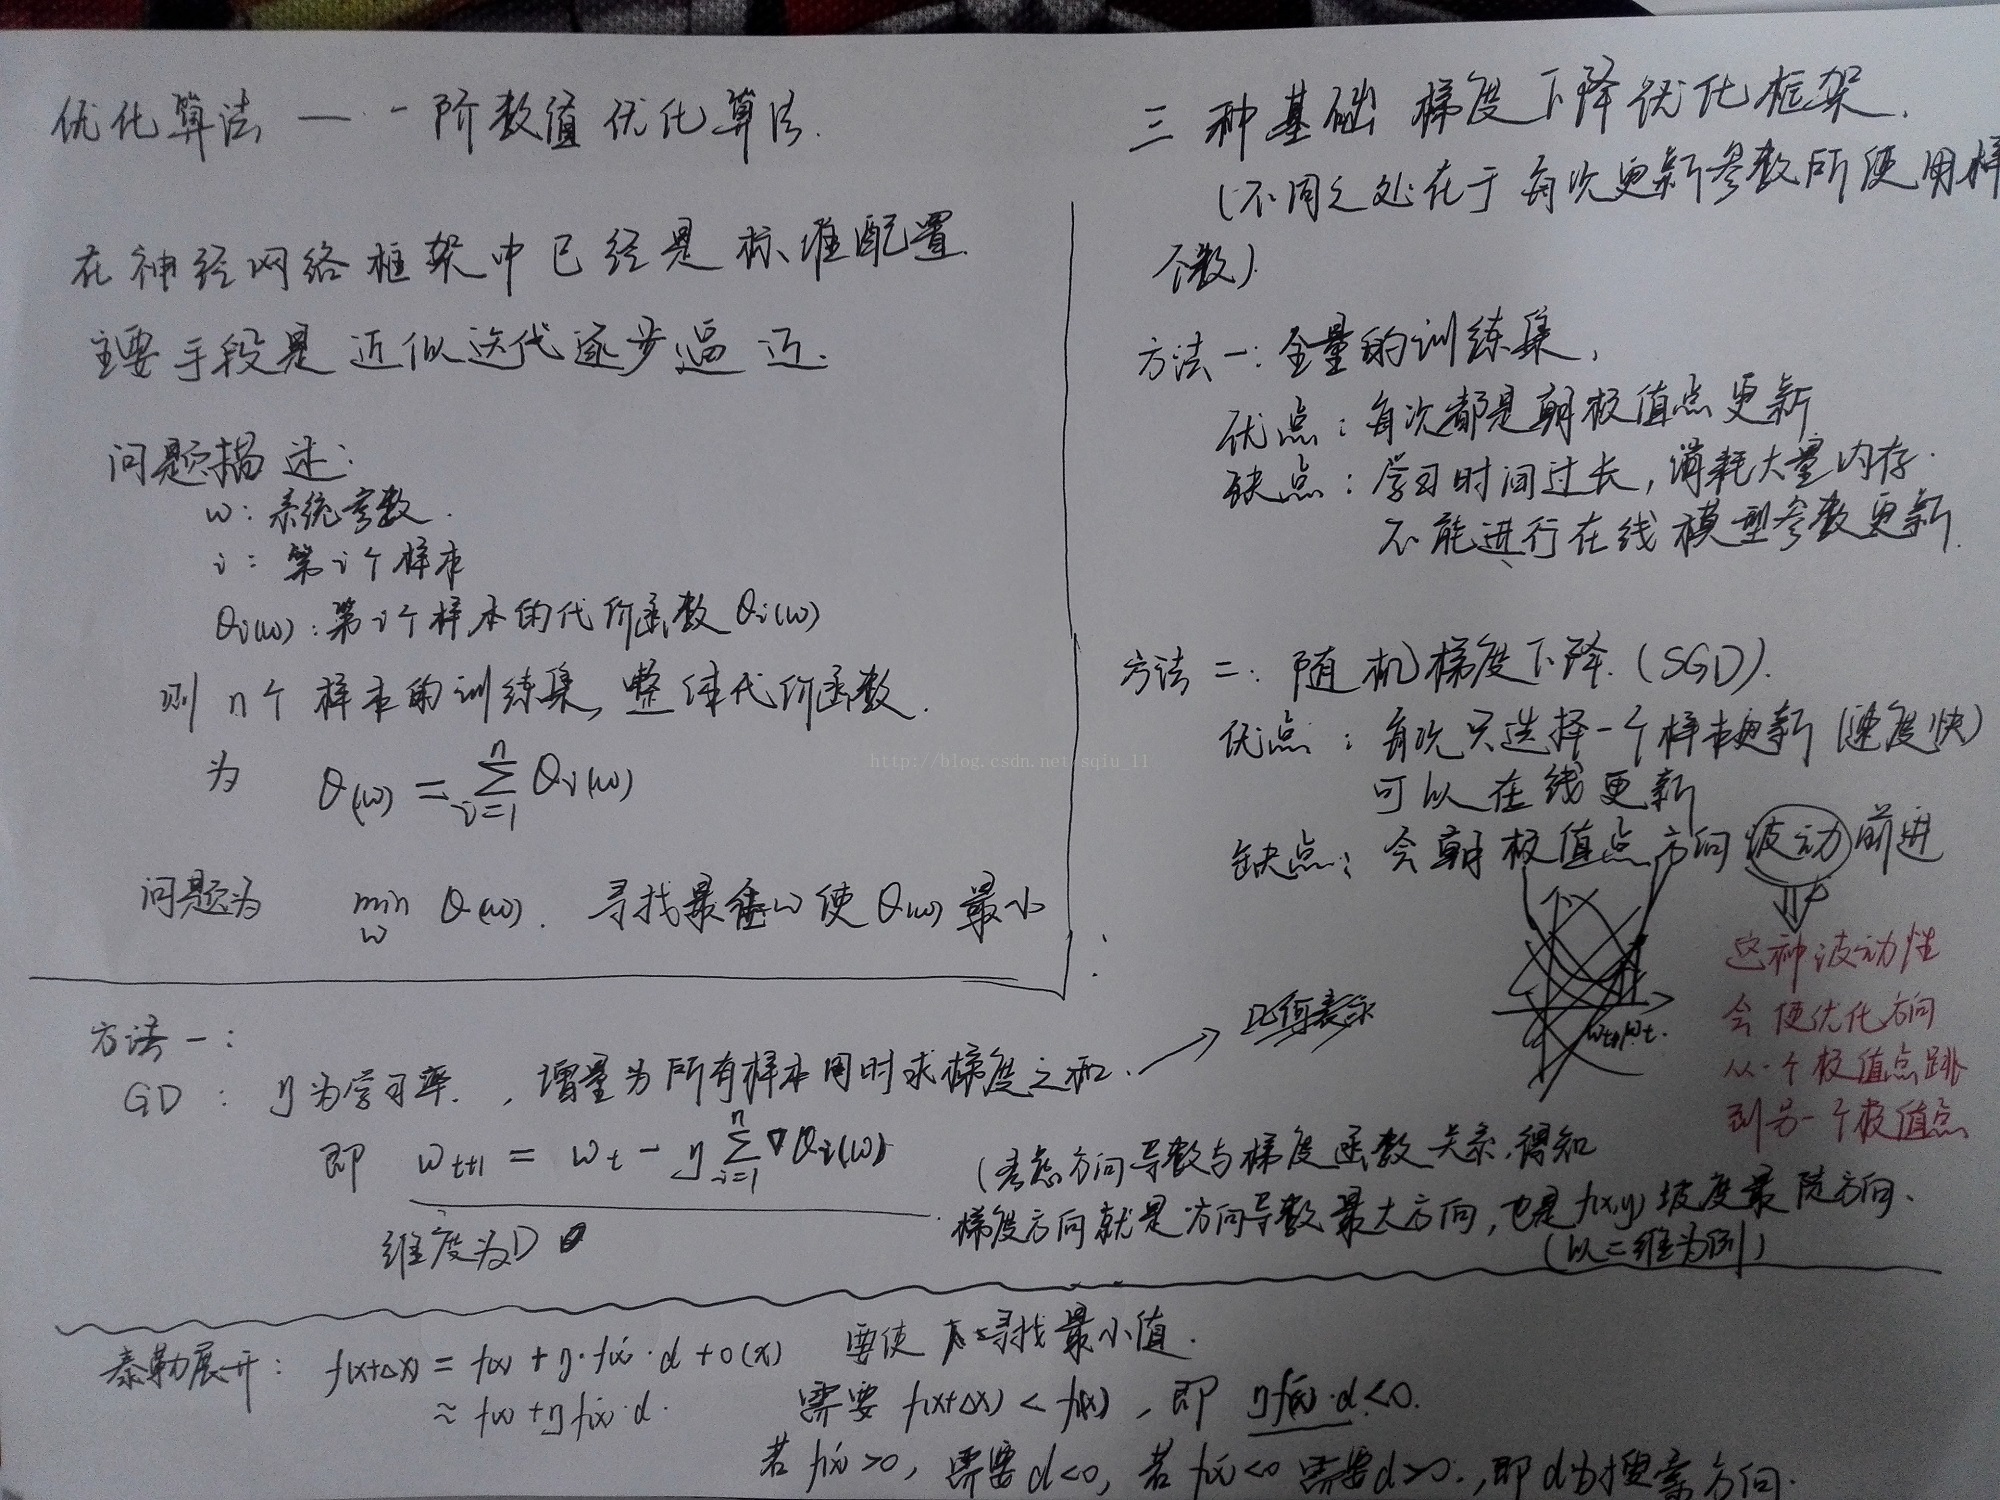 优化算法 — 一阶数值优化算法.
在神经网络框架中已经是标准配置.
主要手段是 近似迭代逐步逼近.
问题描述:
w: 系统参数.
i: 第i个样本
Qi(w): 第i个样本的代价函数Qi(w)
则 n个样本的训练集, 整体代价函数.
为 Q(w) = ∑_{i=1}^{n} Qi(w)
问题为 min_w Q(w). 寻找最佳w使Q(w)最小
三种基础 梯度下降优化框架.
(不同之处在于每次更新参数所使用样
个数).
方法一: 全量的训练集,
优点: 每次都是朝极值点更新
缺点: 学习时间过长, 消耗大量内存.
不能进行在线模型参数更新.
方法二: 随机梯度下降. (SGD).
优点: 每次只选择一个样本更新 (速度快)
可以在线更新
缺点: 会朝极值点方向波动前进
这种波动性
会使优化方向
从一个极值点跳
到另一个极值点
http://blog.csdn.net/sqiu_11
方法一:
GD: η为学习率. , 增量为所有样本同时求梯度之和. → 几何表示
w_{t+1} w_t.
即 w_{t+1} = w_t - η ∑_{i=1}^{n} ∇Qi(w)
维度为D
(考虑方向导数与梯度函数关系, 得知
梯度方向就是方向导数最大方向, 也是f(x,y)坡度最陡方向.
(以二维为例)
泰勒展开: f(x+Δx) = f(x) + η·f'(x)·d + o(x) 要使 寻找最小值.
≈ f(x) + ηf'(x)·d. 需要 f(x+Δx) < f(x), 即 ηf'(x)·d<0.
若 f'(x)>0, 需要d<0, 若 f'(x)<0 需要d>0., 即d为搜索方向.